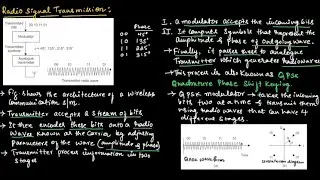 Radio Signal Transmission:
Transmitted bits
20, 10, 11, 01
Modulator
+45°, 135°, 315°, 225°
Analogue transmitter
Transmitted radio wave
Phase
00 45°
10 135°
11 225°
01 315°
→ Fig. shows the architecture of a wireless
Communication s/m.
→ Transmitter accepts a stream of bits
→ It then encodes these bits onto a radio
waves known as the Carrier by adjusting
Parameters of the wave (amplitude & phase)
→ Transmitter process information in two
stages
I. a modulator accepts the incoming bits
II. It computes symbols that represent the
Amplitude & phase of outgoing wave.
→ Finally, it passes them to analogue
Transmitter which generates radio waves
→ This process is also known as QPSK
Quadrature Phase Shift Keying.
→ QPSK modulator → takes the incoming
bits two at a time & transmit them
using radio wave that can have 4
different stages.
QPSK waveform
Constellation diagram